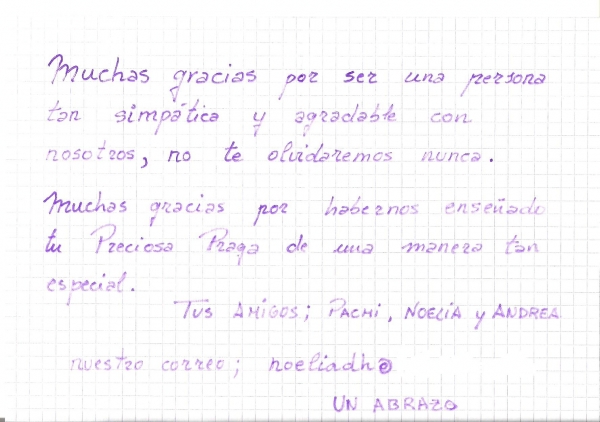 Muchas gracias por ser una persona
tan simpática y agradable con
nosotros, no te olvidaremos nunca.
Muchas gracias por habernos enseñado
tu Preciosa Praga de una manera tan
especial.
TUS AMIGOS; PACHI, NOELIA y ANDREA
nuestro correo; noeliadh@
UN ABRAZO